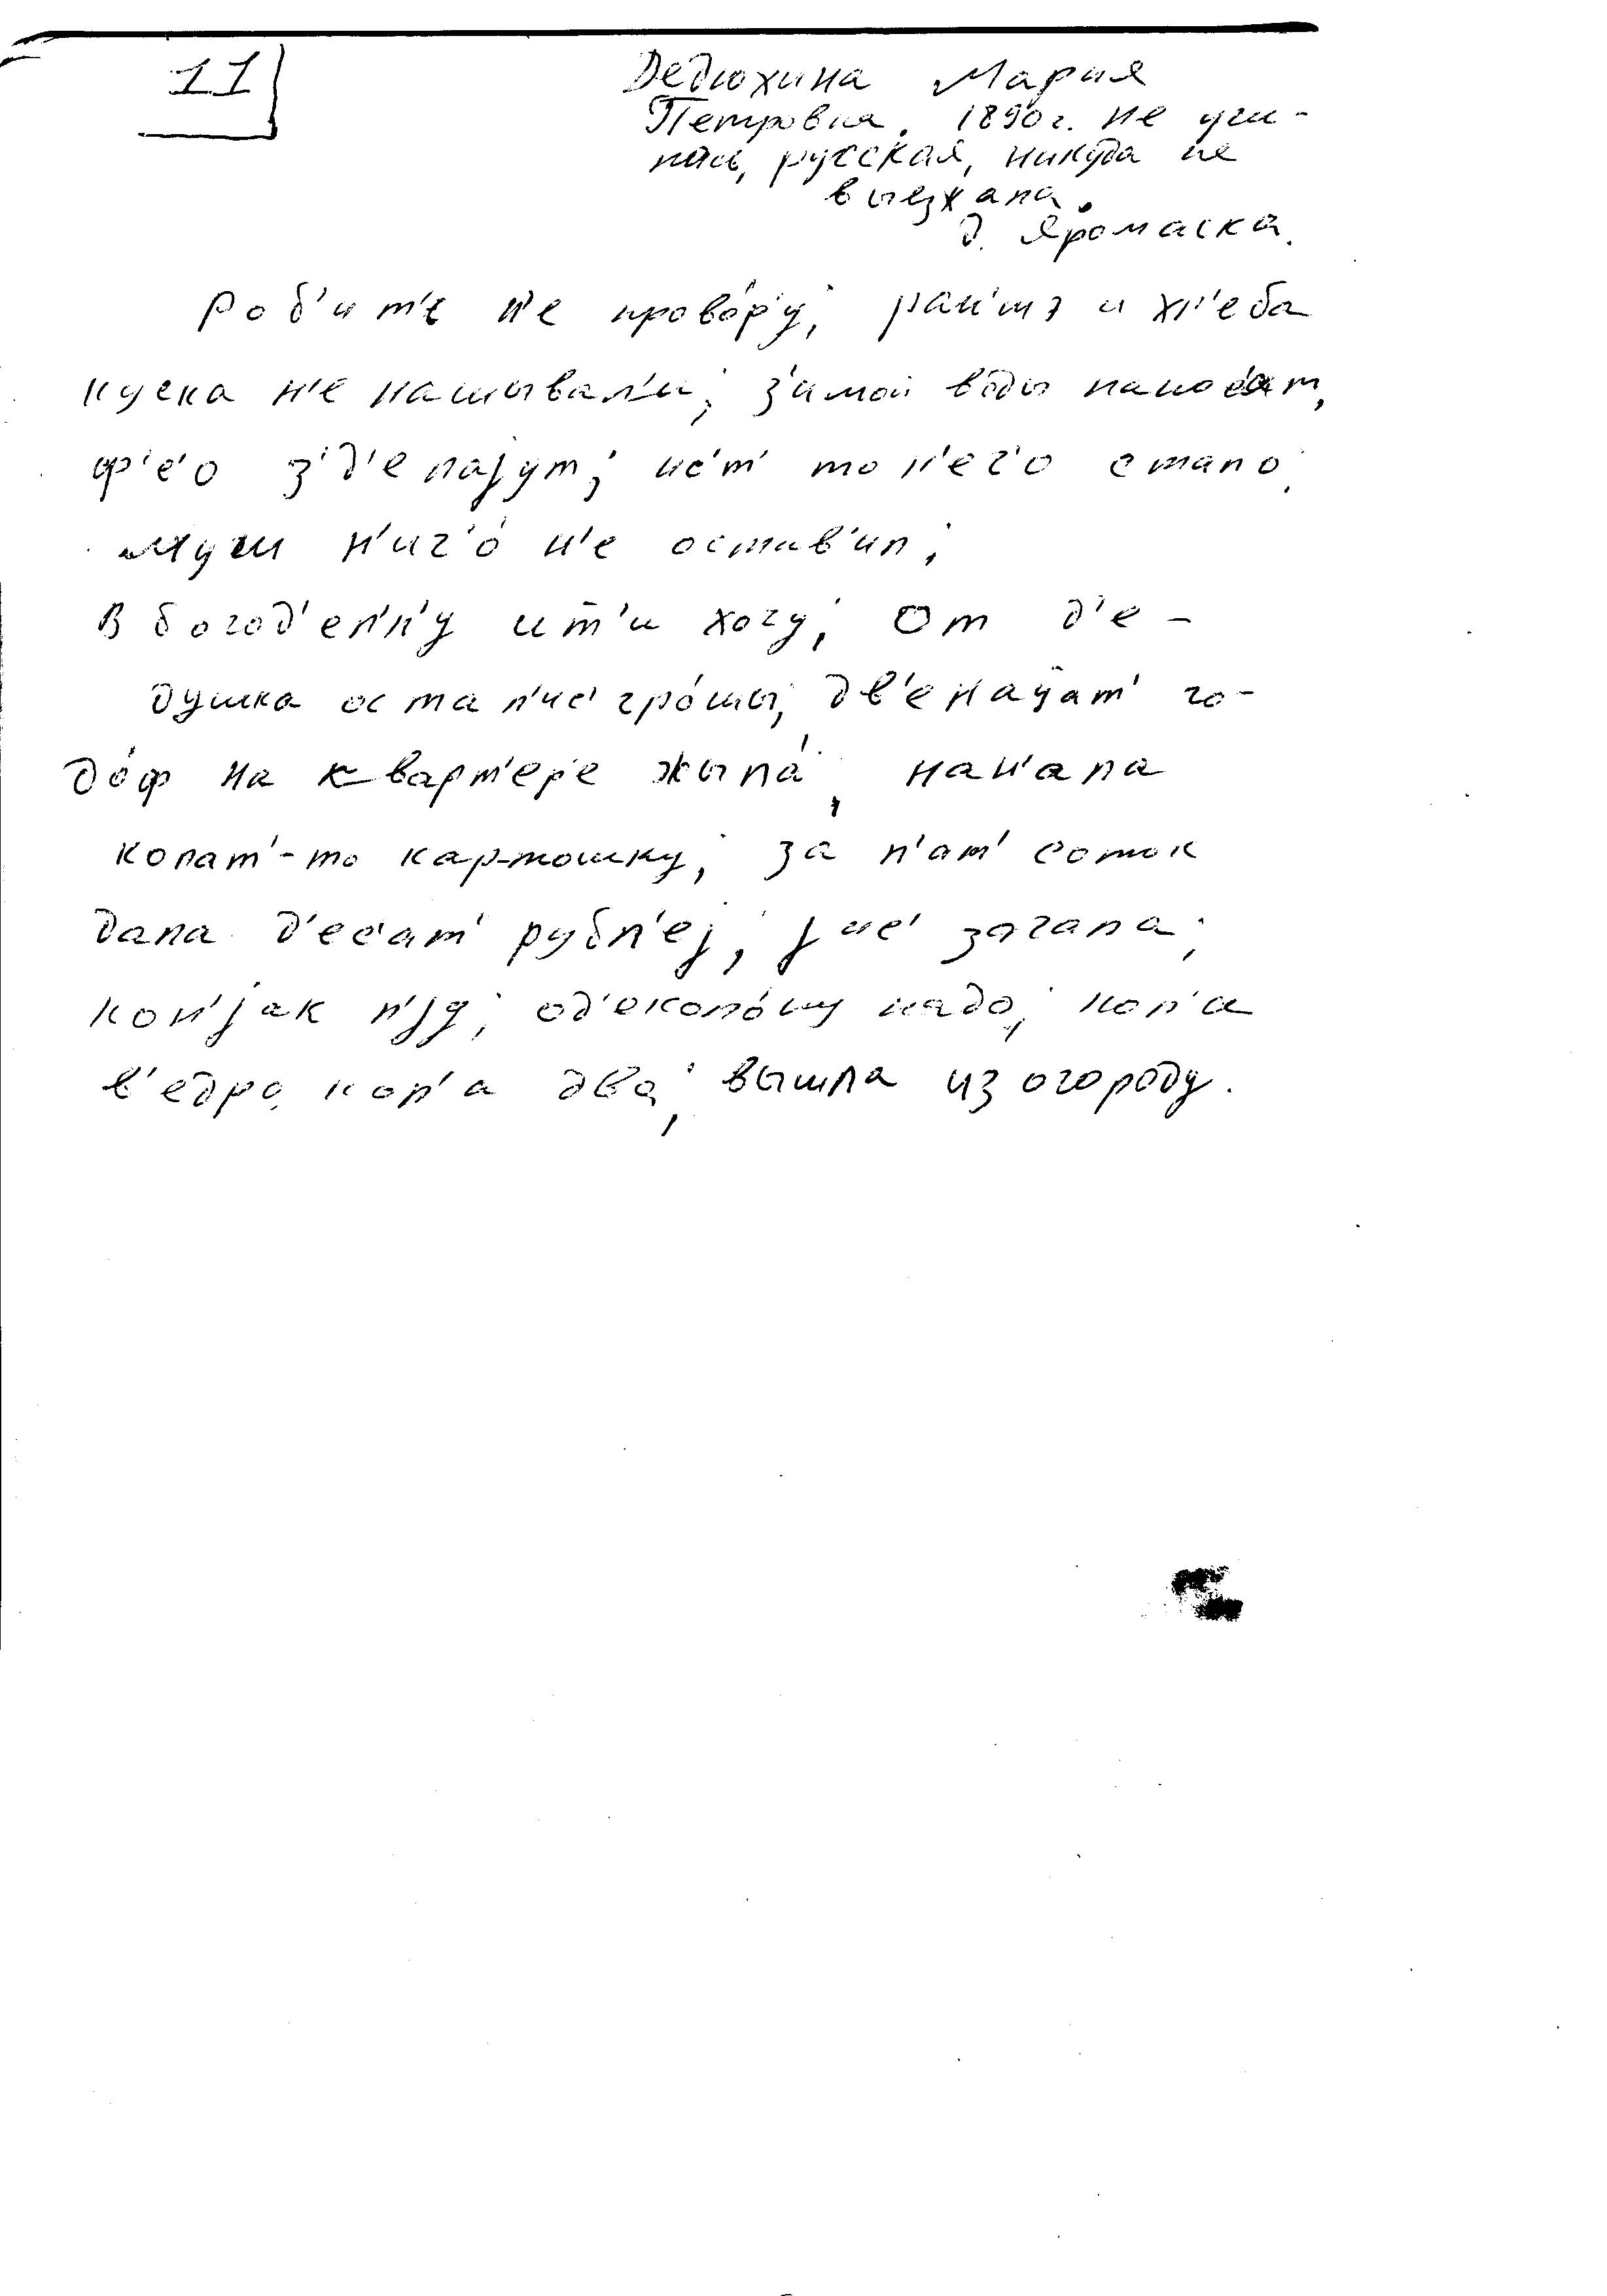 11
Дедюхина Мария
Петровна, 1890г. не учи-
лась, русская, никуда не
выезжала.
д. Яромаска.
роб'ит'е н'е провор'у, ран'шэ и хл'еба
куска н'е нашывал'и, з'имой воды нанос'ат,
ф'с'о з'д'елаjут, н'ет то н'ечо стало,
муш н'ич'о н'е остав'ил,
В богод'ел'н'у ит'и хочу, От д'е-
душка остал'ис' грошы, дв'енацат' го-
доф на кварт'ер'е жыла, нан'ала
копат'-то картошку, за п'ат' соток
дала д'ес'ат' рубл'еj, jис'о зачала,
кон'jак п'jу, од'еколону надо, кол'и
в'едро, кол'а два, вышла из огороду.